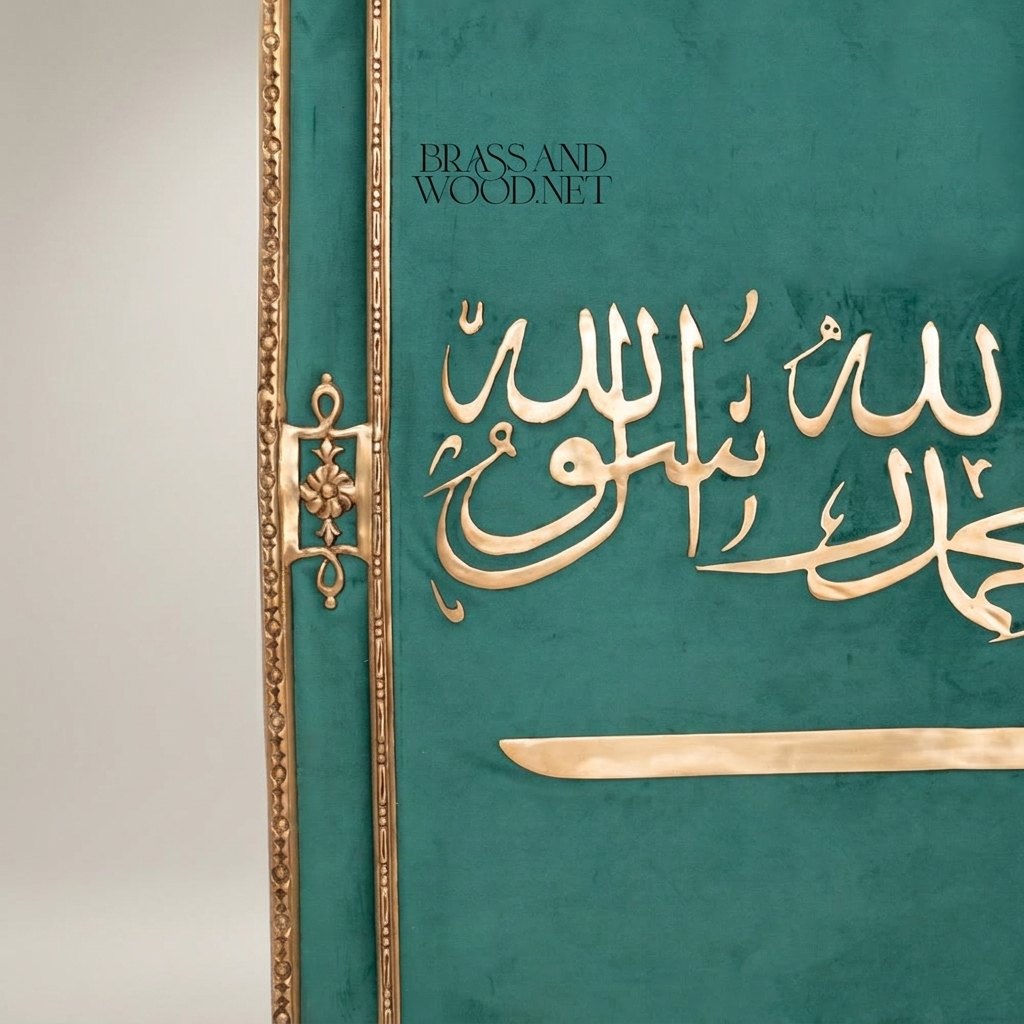 BRASS AND
WOOD.NET
لله محمد رسول الله